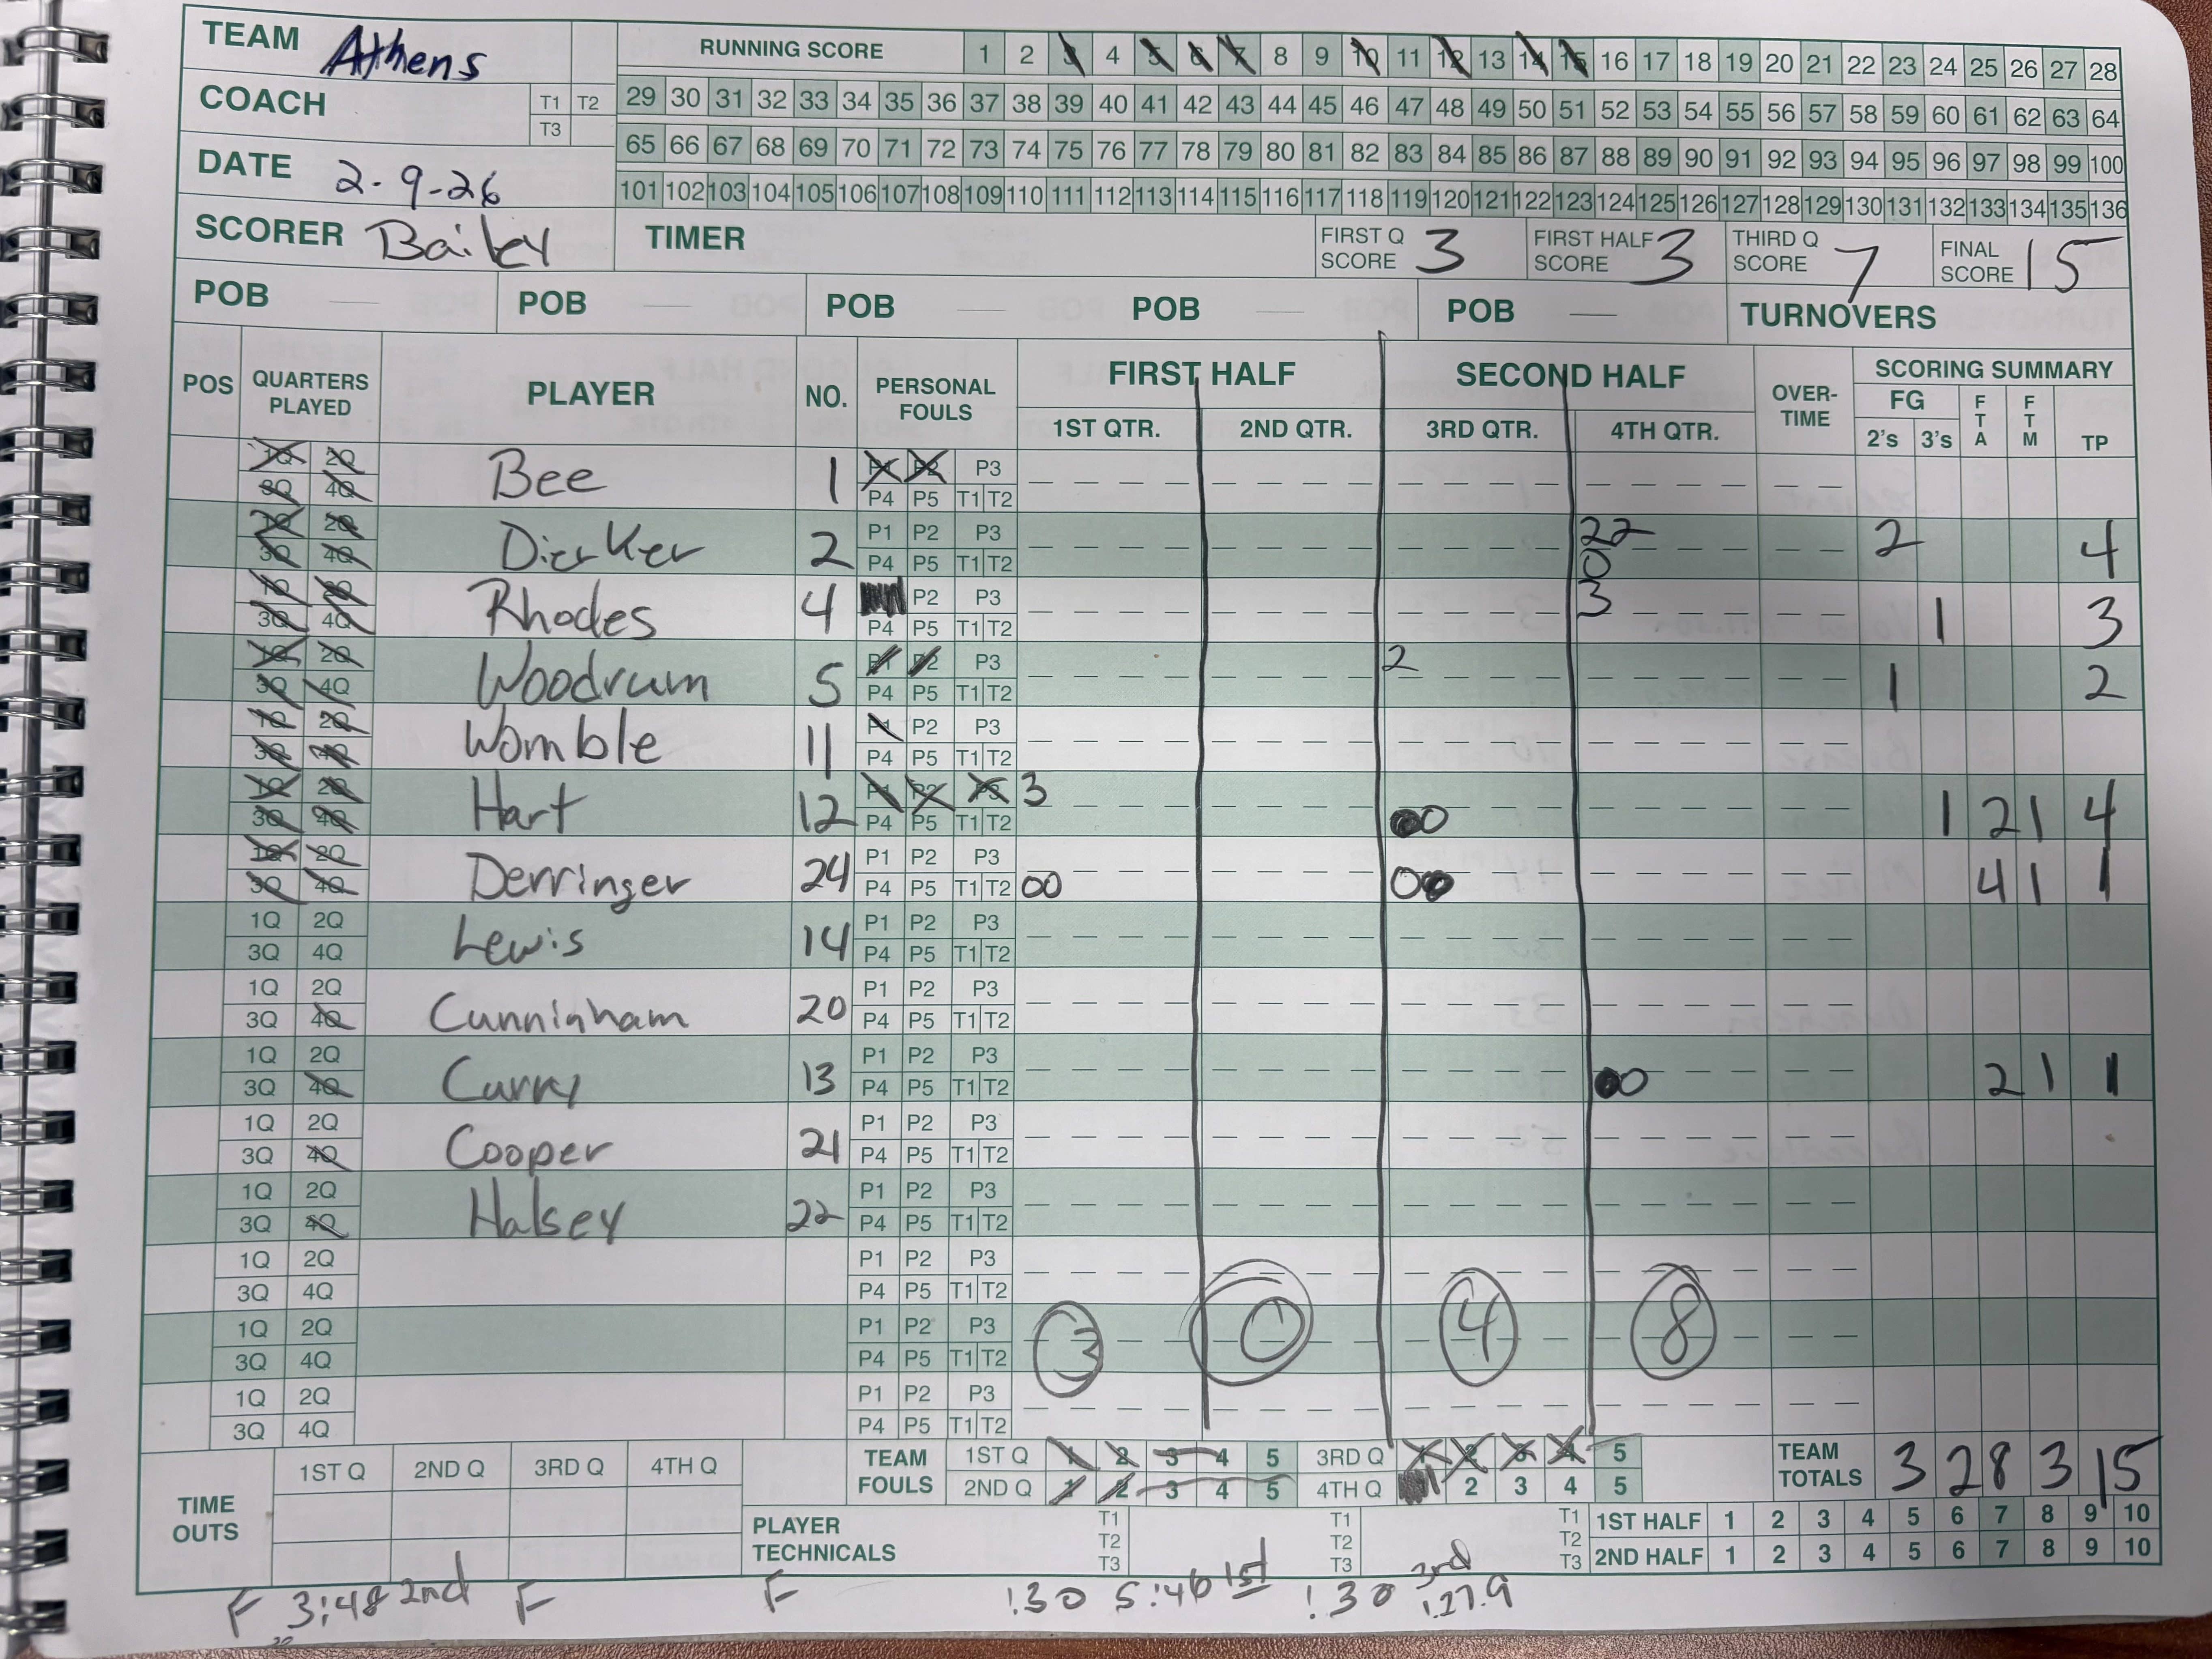 TEAM Athens RUNNING SCORE 1 2 3 4 5 6 7 8 9 10 11 12 13 14 15 16 17 18 19 20 21 22 23 24 25 26 27 28
COACH T1 T2 T3 29 30 31 32 33 34 35 36 37 38 39 40 41 42 43 44 45 46 47 48 49 50 51 52 53 54 55 56 57 58 59 60 61 62 63 64
DATE 2-9-26 65 66 67 68 69 70 71 72 73 74 75 76 77 78 79 80 81 82 83 84 85 86 87 88 89 90 91 92 93 94 95 96 97 98 99 100
101 102 103 104 105 106 107 108 109 110 111 112 113 114 115 116 117 118 119 120 121 122 123 124 125 126 127 128 129 130 131 132 133 134 135 136
SCORER Bailey TIMER FIRST Q SCORE 3 FIRST HALF SCORE 3 THIRD Q SCORE 7 FINAL SCORE 15
POB POB POB POB POB TURNOVERS
POS QUARTERS PLAYED PLAYER NO. PERSONAL FOULS FIRST HALF SECOND HALF OVER-TIME SCORING SUMMARY
1ST QTR. 2ND QTR. 3RD QTR. 4TH QTR. FG 2's 3's FTA FTM TP
1Q 2Q Bee 1 P1 P2 P3
3Q 4Q P4 P5 T1 T2
1Q 2Q Dierker 2 P1 P2 P3 22 2 4
3Q 4Q P4 P5 T1 T2 0
1Q 2Q Rhodes 4 P2 P3 3 1 3
3Q 4Q P4 P5 T1 T2
1Q 2Q Woodrum 5 P1 P2 P3 2 1 2
3Q 4Q P4 P5 T1 T2
1Q 2Q Womble 11 P1 P2 P3
3Q 4Q P4 P5 T1 T2
1Q 2Q Hart 12 P1 P2 P3 3 1 2 1 4
3Q 4Q P4 P5 T1 T2 00
1Q 2Q Derringer 24 P1 P2 P3 4 1 1
3Q 4Q P4 P5 T1 T2 00 00
1Q 2Q Lewis 14 P1 P2 P3
3Q 4Q P4 P5 T1 T2
1Q 2Q Cunninham 20 P1 P2 P3
3Q 4Q P4 P5 T1 T2
1Q 2Q Curry 13 P1 P2 P3
3Q 4Q P4 P5 T1 T2 00 2 1 1
1Q 2Q Cooper 21 P1 P2 P3
3Q 4Q P4 P5 T1 T2
1Q 2Q Halsey 22 P1 P2 P3
3Q 4Q P4 P5 T1 T2
1Q 2Q P1 P2 P3
3Q 4Q P4 P5 T1 T2
1Q 2Q P1 P2 P3 3 0 4 8
3Q 4Q P4 P5 T1 T2
1Q 2Q P1 P2 P3
3Q 4Q P4 P5 T1 T2
TIME OUTS 1ST Q 2ND Q 3RD Q 4TH Q TEAM FOULS 1ST Q 1 2 3 4 5 3RD Q 1 2 3 4 5 TEAM TOTALS 3 2 8 3 15
2ND Q 1 2 3 4 5 4TH Q 2 3 4 5
PLAYER TECHNICALS T1 T2 T3 T1 T2 T3 T1 T2 T3 1ST HALF 1 2 3 4 5 6 7 8 9 10
2ND HALF 1 2 3 4 5 6 7 8 9 10
F 3:48 2nd F F :30 5:46 1st :30 3rd :27.9